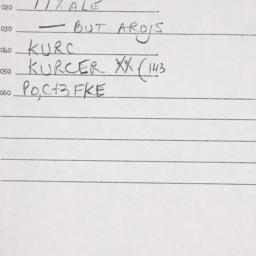 020
030 — BUT AROJS
040 KURC
050 KURCER XX (143
060 PO,C+3 FKE